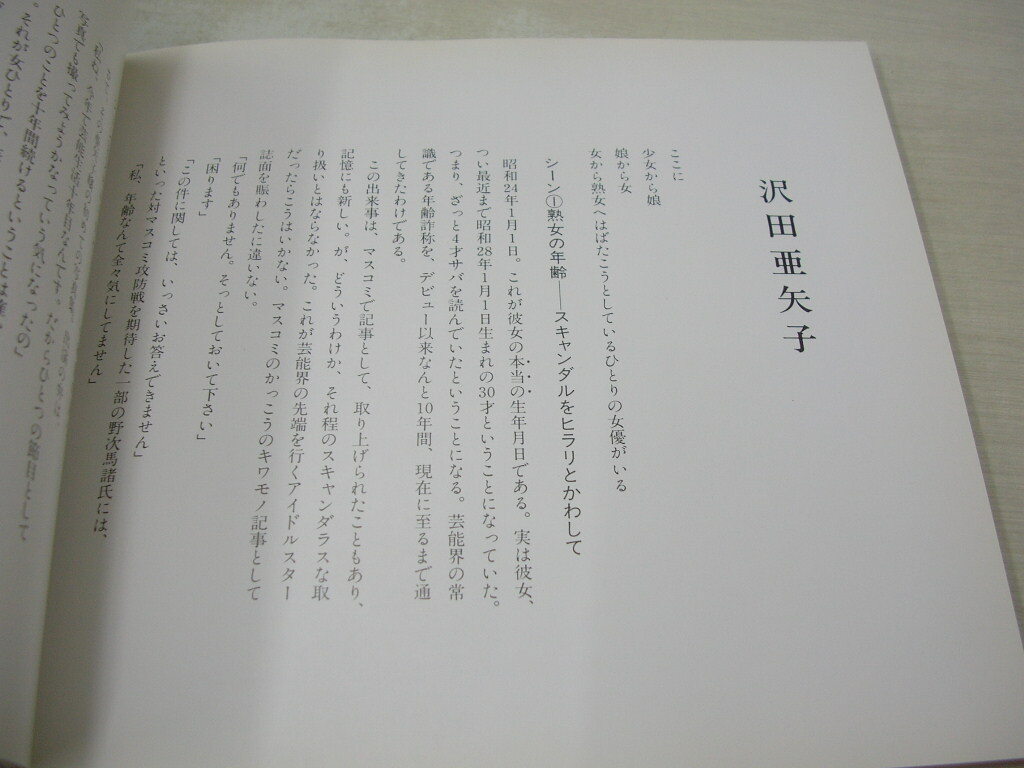 沢田亜矢子
ここに
少女から娘
娘から女
女から熟女へはばたこうとしているひとりの女優がいる
シーン①熟女の年齢——スキャンダルをヒラリとかわして
昭和24年1月1日。これが彼女の本当の生年月日である。実は彼女、
つい最近まで昭和28年1月1日生まれの30才ということになっていた。
つまり、ざっと4才サバを読んでいたということになる。芸能界の常
識である年齢詐称を、デビュー以来なんと10年間、現在に至るまで通
してきたわけである。
この出来事は、マスコミで記事として、取り上げられたこともあり、
記憶にも新しい。が、どういうわけか、それ程のスキャンダラスな取
り扱いとはならなかった。これが芸能界の先端を行くアイドルスター
だったらこうはいかない。マスコミのかっこうのキワモノ記事として
誌面を賑わしたに違いない。
「何でもありません。そっとしておいて下さい」
「困ります」
「この件に関しては、いっさいお答えできません」
といった対マスコミ攻防戦を期待した一部の野次馬諸氏には、
「私、年齢なんて全々気にしてません」
写真でも撮ってみようかなっていう気になったの」
ひとつのことを十年間続けるということは
それが女ひとりで、